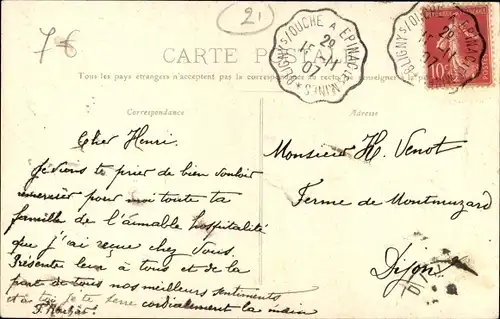 7€
2
CARTE POSTALE
Tous les pays étrangers n'acceptent pas la correspondance au recto, se renseigner à la
BLIGNY S/OUCHE A EPINAC-LES-MINES
29
15 -11
07
BLIGNY S/OUCHE A
29
07
10
POSTES
Correspondance
Adresse
Cher Henri.
Je viens te prier de bien vouloir
remercier pour moi toute ta
famille de l'aimable hospitalité
que j'ai reçue chez vous.
Présente leur à tous et de la
part de tous nos meilleurs sentiments
et à toi je te serre cordialement la main
Monsieur H. Venot
Ferme de Montmuzard
Dijon